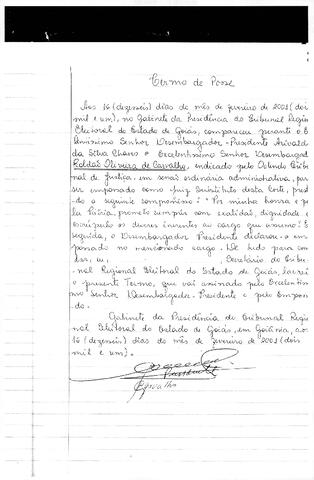 Termo de Posse
Aos 16 (dezesseis) dias do mês de fevereiro de 2001 (dois
mil e um), no Gabinete da Presidência do Tribunal Regio
Eleitoral do Estado de Goiás, compareceu perante o E
lentíssimo Senhor Desembargador-Presidente Arivaldo
da Silva Chaves o Excelentíssimo Senhor Desembargad
Roldão Oliveira de Carvalho, indicado pelo Tribu
nal de Justiça, em sessão ordinária administrativa, par
ser empossado como Juiz Substituto desta Corte, prest
do o seguinte compromisso: "Por minha honra e p
la Pátria, prometo cumprir com exatidão, dignidade e
escrúpulo os deveres inerentes ao cargo que assumo". E
seguida, o Desembargador Presidente declarou-o em
possado no mencionado cargo. Do tudo para con
tar, eu, , Secretário do Tribu
nal Regional Eleitoral do Estado de Goiás, lavrei
o presente Termo, que vai assinado pelo Excelentíss
mo Senhor Desembargador-Presidente e pelo Empossa
do.
Gabinete da Presidência do Tribunal Regio
nal Eleitoral do Estado de Goiás, em Goiânia, aos
16 (dezesseis) dias do mês de fevereiro de 2001 (dois
mil e um).
Carvalho